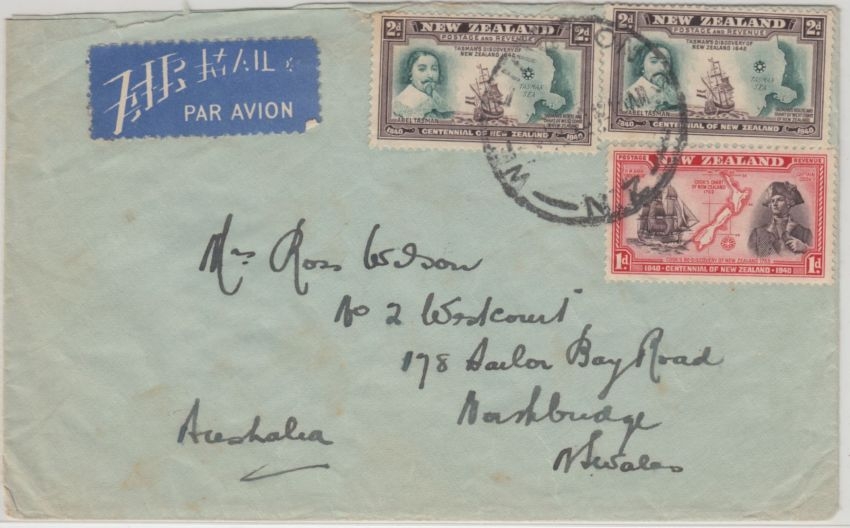 AIR MAIL
PAR AVION
2d NEW ZEALAND 2d
POSTAGE AND REVENUE
TASMAN'S DISCOVERY OF
NEW ZEALAND 1642
TASMAN
SEA
ABEL TASMAN
1840 CENTENNIAL OF NEW ZEALAND 1940
2d NEW ZEALAND 2d
POSTAGE AND REVENUE
TASMAN'S DISCOVERY OF
NEW ZEALAND 1642
TASMAN
SEA
ABEL TASMAN
1840 CENTENNIAL OF NEW ZEALAND 1940
N.Z
POSTAGE NEW ZEALAND REVENUE
COOK'S CHART
OF NEW ZEALAND
1769
COOK'S RE-DISCOVERY OF NEW ZEALAND 1769
1d 1840 - CENTENNIAL OF NEW ZEALAND - 1940 1d
Mrs Ross Wilson
No 2 Westcourt
178 Sailor Bay Road
Northbridge
N.S.Wales
Australia